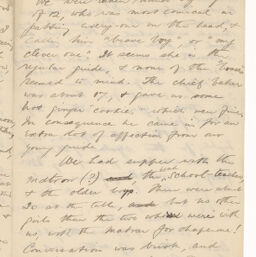 We were taken round by
of 12, who was most comical in
patting every one on the head, &
him "brave boy" or "my
clever one". It seems she is the
regular guide, & none of the
seemed to mind. The chief baker
was about 17, & gave us some
hot ginger cookies, which were fine.
In consequence he came in for an
extra lot of affection from our
young guide.
We had supper with the
Matron (?) the school-teacher,
& the older boys. There were about
20 at the table, but no other
girls than the two who were with
us, not the Matron for chaperone!
Conversation was brisk, and